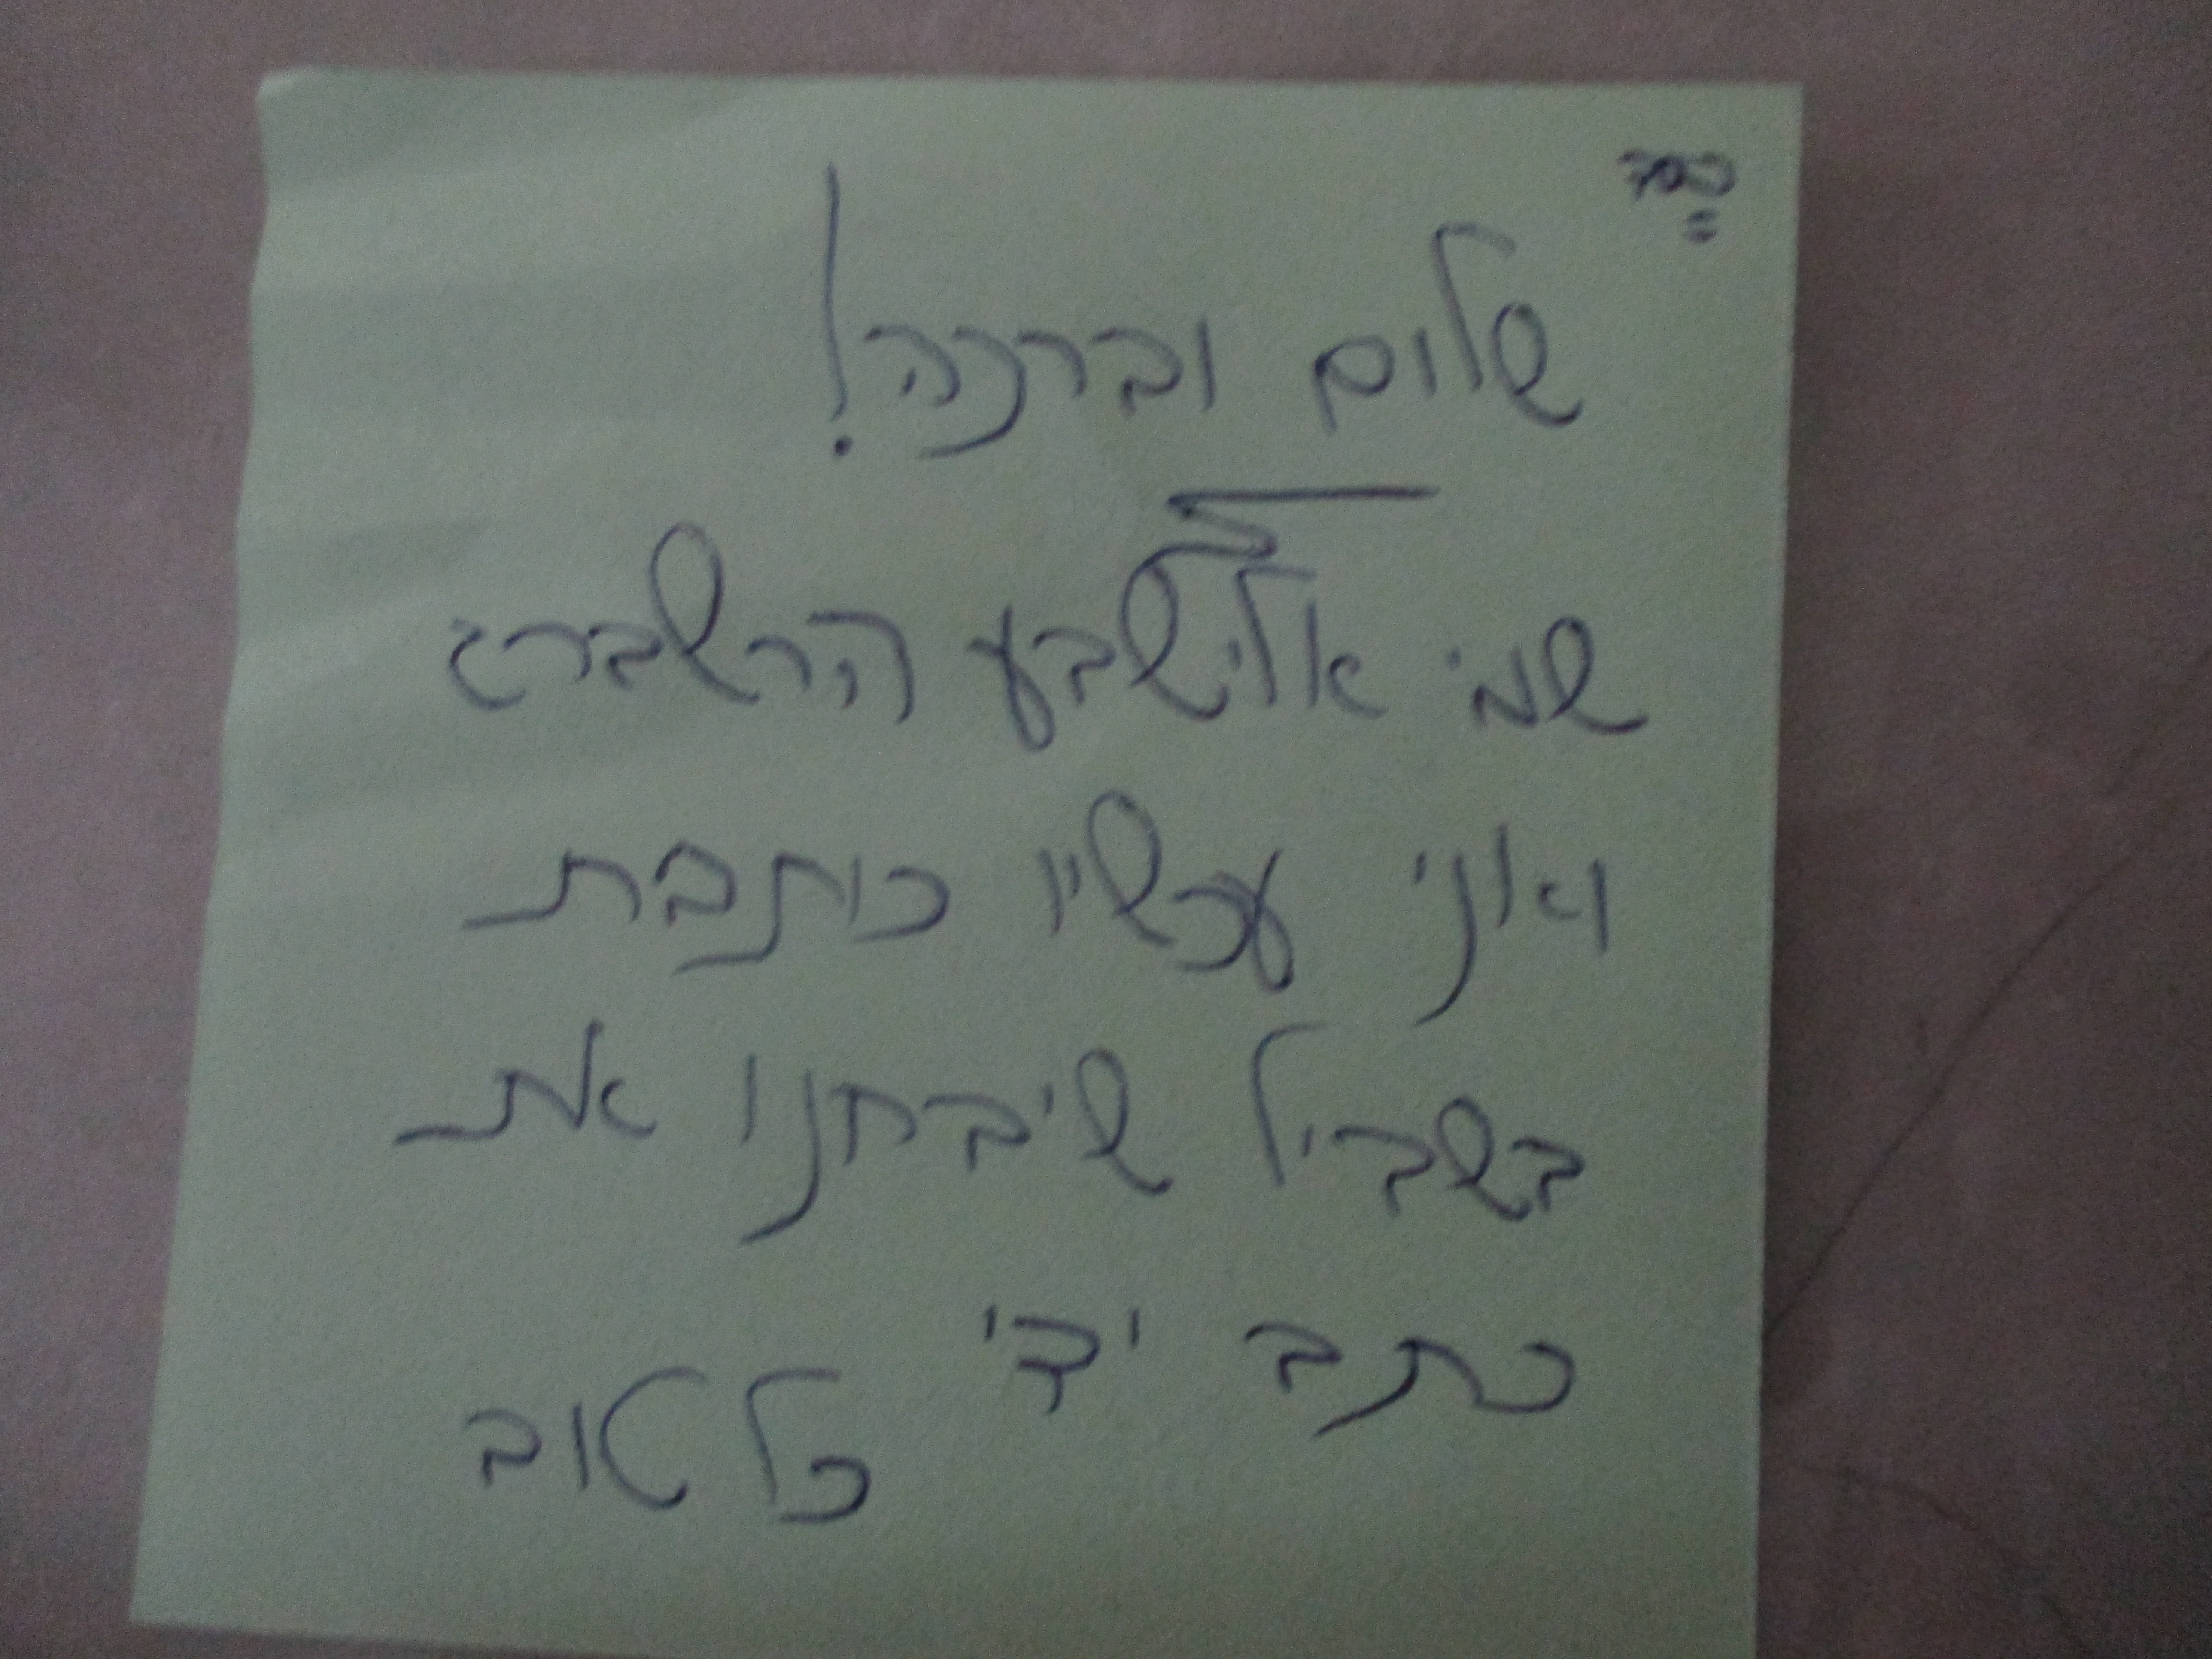 בס"ד
שלום וברכה!
שמי אלישבע הרשברג
ואני עכשיו כותבת
בשביל שיבחנו את
כתב ידי